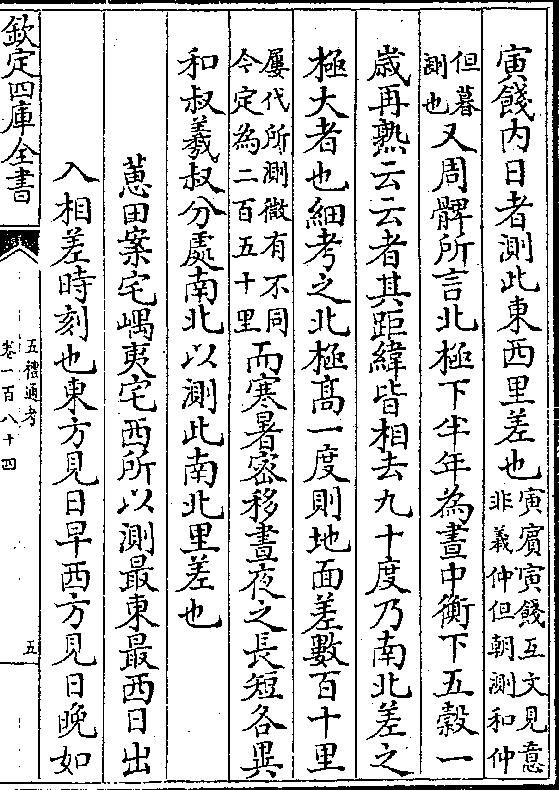 寅餞内日者測此東西里差也寅賓寅餞互文見意非羲仲但朝測和仲
但暮測也又周髀所言北極下半年為晝中衡下五穀一
歳再熟云云者其距緯皆相去九十度乃南北差之
極大者也細考之北極髙一度則地面差數百十里
屢代所測微有不同今定為二百五十里而寒暑宻移晝夜之長短各異
和叔羲叔分處南北以測此南北里差也
蕙田案宅嵎夷宅西所以測最東最西日出
入相差時刻也東方見日早西方見日晚如
欽定四庫全書
五禮通考
卷一百八十四
五